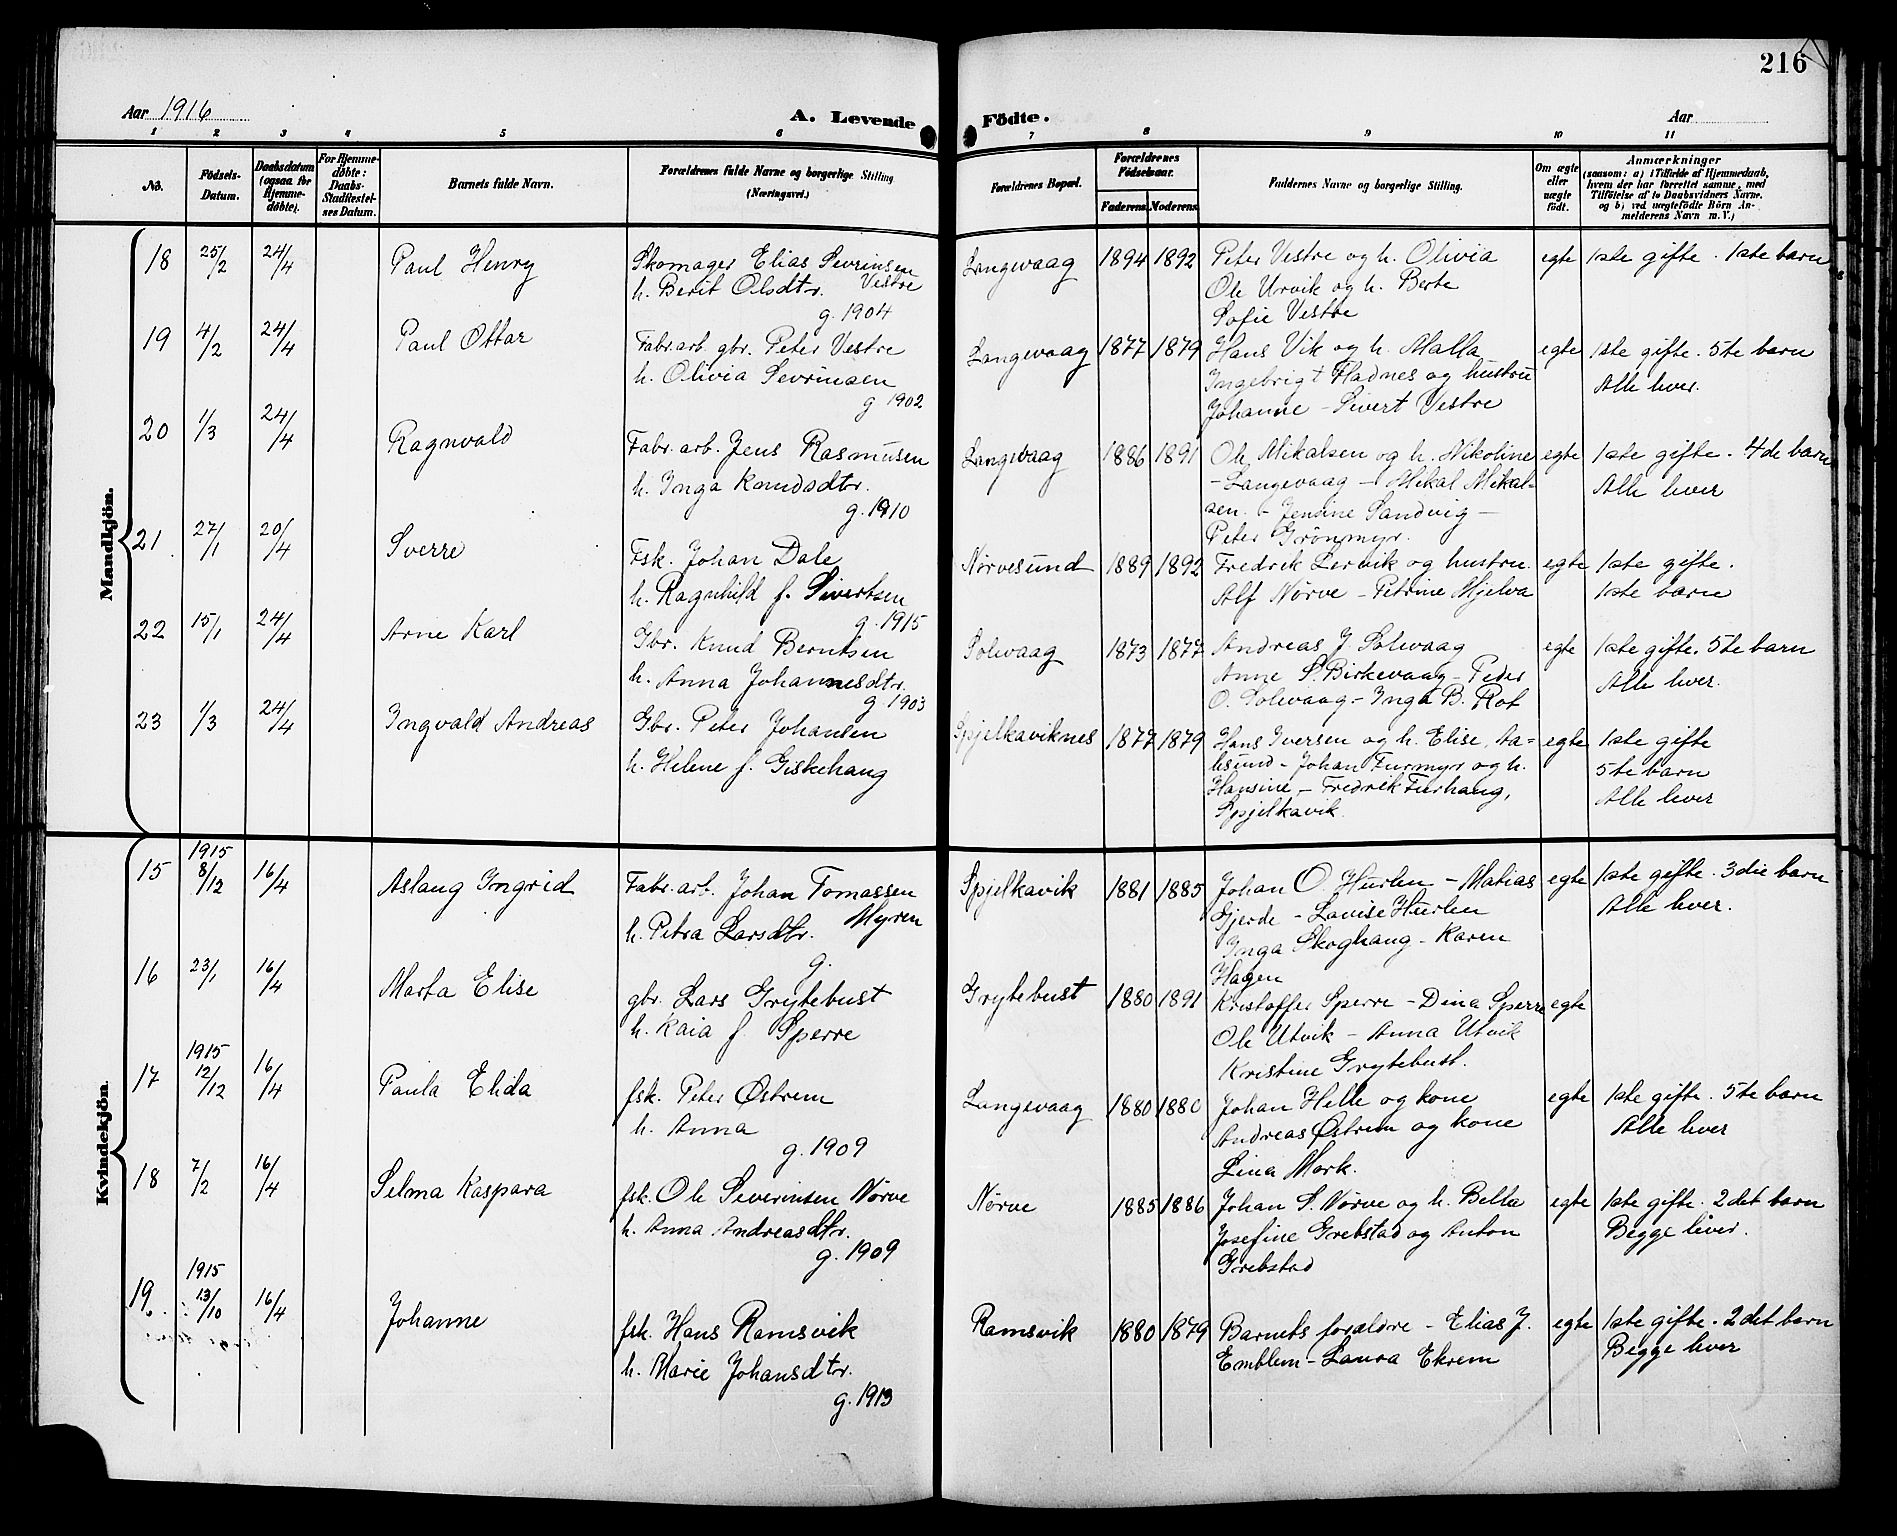 216
Aar 1916
A. Levende Födte.
Aar
1 2 3 4 5 6 7 8 9 10 11
No.
Födsels-
Datum.
Daabsdatum
(ogsaa for
Hjemme-
döbte).
For Hjemme-
döbte:
Daabs-
Stadfæstel-
ses Datum.
Barnets fulde Navn.
Forældrenes fulde Navne og borgerlige Stilling
(Næringsvei.)
Forældrenes Bopæl.
Forældrenes
Födselsaar.
Faderens. Moderens.
Faddernes Navne og borgerlige Stilling.
Om ægte
eller
uægte
födt.
Anmærkninger
(saasom: a) i Tilfælde af Hjemmedaab,
hvem der har forrettet samme, med
Tilföielse af to Daabsvidners Navne,
og b) ved uægtefödte Börn An-
melderens Navn m. V.)
Mandkjön.
18 25/2 24/4 Paul Henry
Skomager Elias Sevrinsen
Vestre
h. Berit Olsdtr.
g. 1904
Langevaag 1894 1892
Peter Vestre og h. Olivia
Ole Urvik og h. Berte
Sofie Vestre
egte 1ste gifte. 1ste barn
19 4/2 24/4 Paul Ottar
Fabr.arb. gbr. Peter Vestre
h. Olivia Sevrinsen
g 1902
Langevaag 1877 1879
Hans Vik og h. Malla
Ingebrigt Fladnes og hustru
Johanne - Sivert Vestre
egte 1ste gifte. 5te barn
Alle lever.
20 1/3 24/4 Ragnvald
Fabr. arb. Jens Rasmusen
h. Inga Knudsdtr.
g. 1910
Langevaag 1886 1891
Ole Mikalsen og h. Nikoline
- Langevaag - Mikal Mikal-
sen. - Jensine Sandvig -
Peter Grönmyr.
egte 1ste gifte. 4de barn
Alle lever
21 27/1 20/4 Sverre
Fsk. Johan Dale
h. Ragnhild f. Sivertsen
g. 1915
Nørvesund 1889 1892
Fredrik Lervik og hustru.
Alf Nørve - Petrine Hjelva
egte 1ste gifte.
1ste barn
22 15/1 24/4 Arne Karl
Gbr. Knud Berntsen
h. Anna Johannesdtr.
g. 1903
Solevaag 1873 1877
Andreas J. Solevaag
Anne S. Birkevaag - Peder
O. Solevaag - Inga B. Rot
egte 1ste gifte. 5te barn
Alle lever.
23 1/3 24/4 Ingvald Andreas
Gbr. Peter Johansen
h. Helene f. Giskehaug
Spjelkaviknes 1877 1879
Hans Iversen og h. Elise, Aa-
lesund - Johan Furmyr og h.
Hansine - Fredrik Furhaug,
Spjelkavik.
egte 1ste gifte
5te barn
Alle lever
Kvindekjön.
15 1915 8/12 16/4 Aslaug Ingrid
Fabr. arb. Johan Tomassen
Myren
h. Petra Larsdtr.
g.
Spjelkavik 1881 1885
Johan O. Hurlen - Matias
Gjerde - Lovise Hurlen
Inga Skoghaug - Karen
Hagen
egte 1ste gifte. 3die barn
Alle lever.
16 23/1 16/4 Marta Elise
gbr. Lars Grytebust
h. Kaia f. Sperre
Grytebust 1880 1891
Kristoffer Sperre - Dina Sperre
Ole Utvik - Anna Utvik
Kristine Grytebust.
egte
17 1915 12/12 16/4 Paula Elida
fsk. Peter Østrem
h. Anna
g. 1909
Langevaag 1880 1880
Johan Helle og kone
Andreas Østrem og kone
Lina Mork.
egte 1ste gifte. 5te barn
Alle lever
18 7/2 16/4 Selma Kaspara
fsk. Ole Severinsen Nørve
h. Anna Andreasdtr.
g. 1909
Nørve 1885 1886
Johan S. Nørve og h. Bella
Josefine Grebstad og Anton
Grebstad
egte 1ste gifte. 2det barn
Begge lever.
19. 1915 13/10 16/4 Johanne
fsk. Hans Ramsvik
h. Marie Johansdtr.
g. 1913
Ramsvik 1880 1879
Barnets forældre - Elias J.
Emblem - Laura Ekrem
egte 1ste gifte. 2det barn
Begge lever